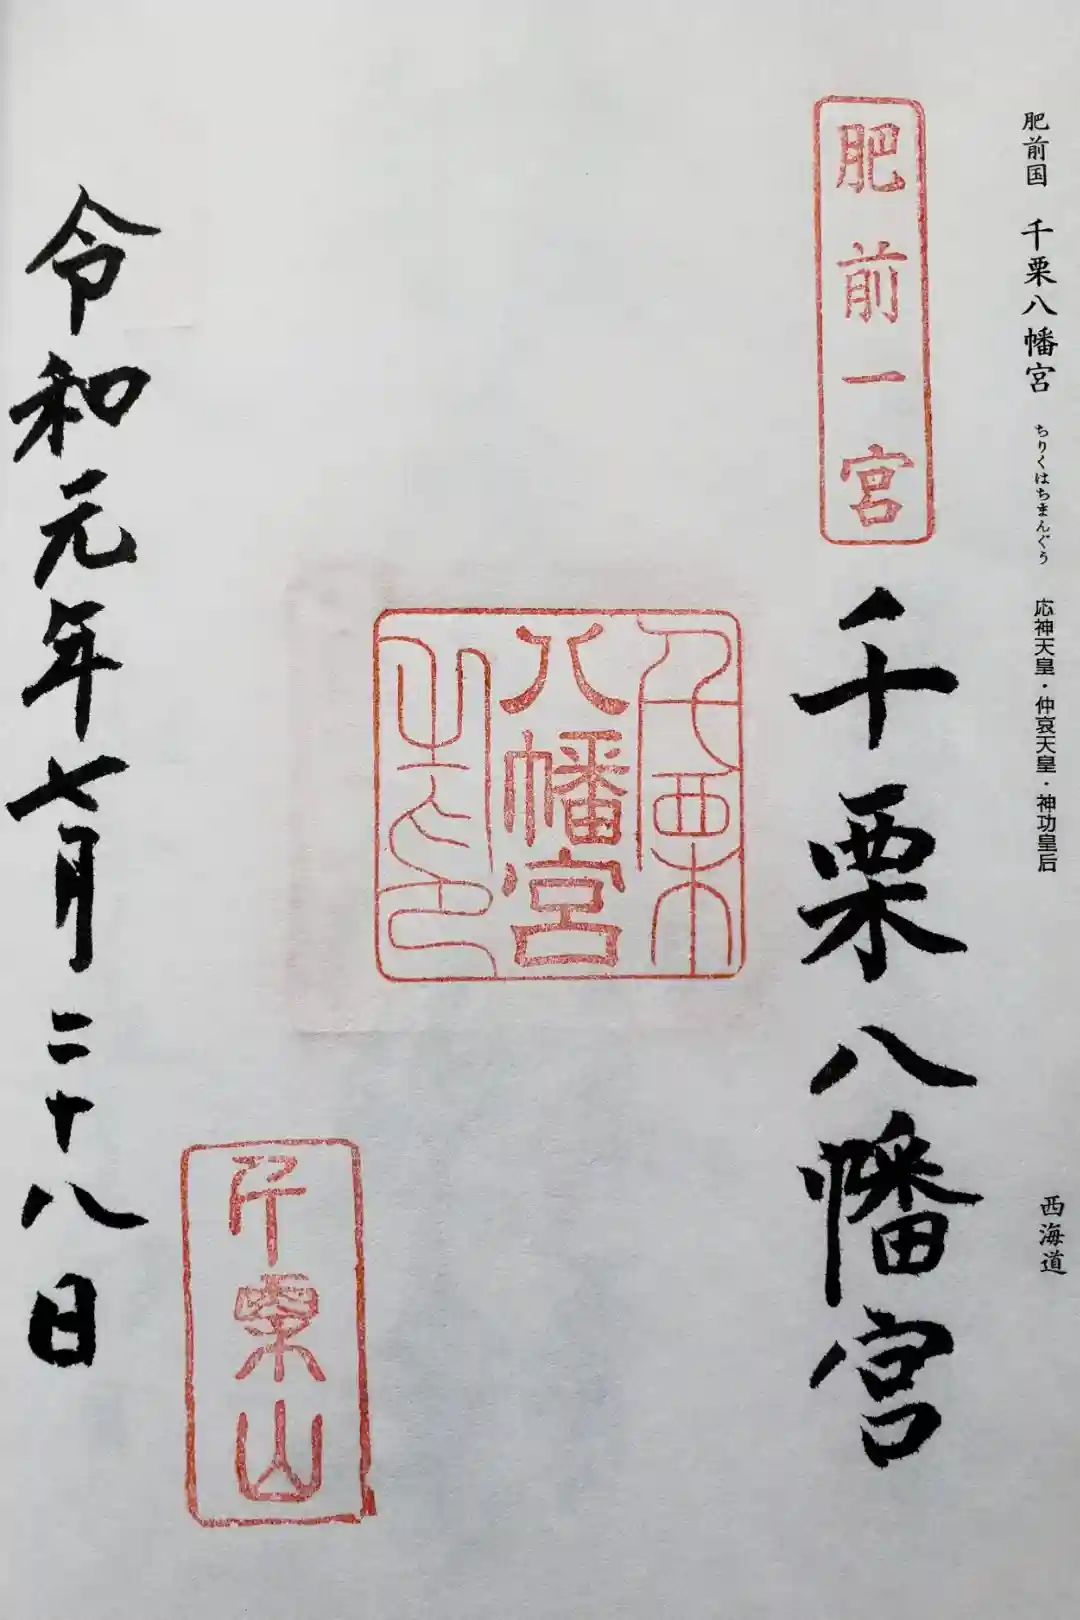 肥前国 千栗八幡宮 ちりくはちまんぐう 応神天皇・仲哀天皇・神功皇后
西海道
肥前一宮
千栗八幡宮
千栗
八幡宮
之印
千栗山
令和元年七月二十八日